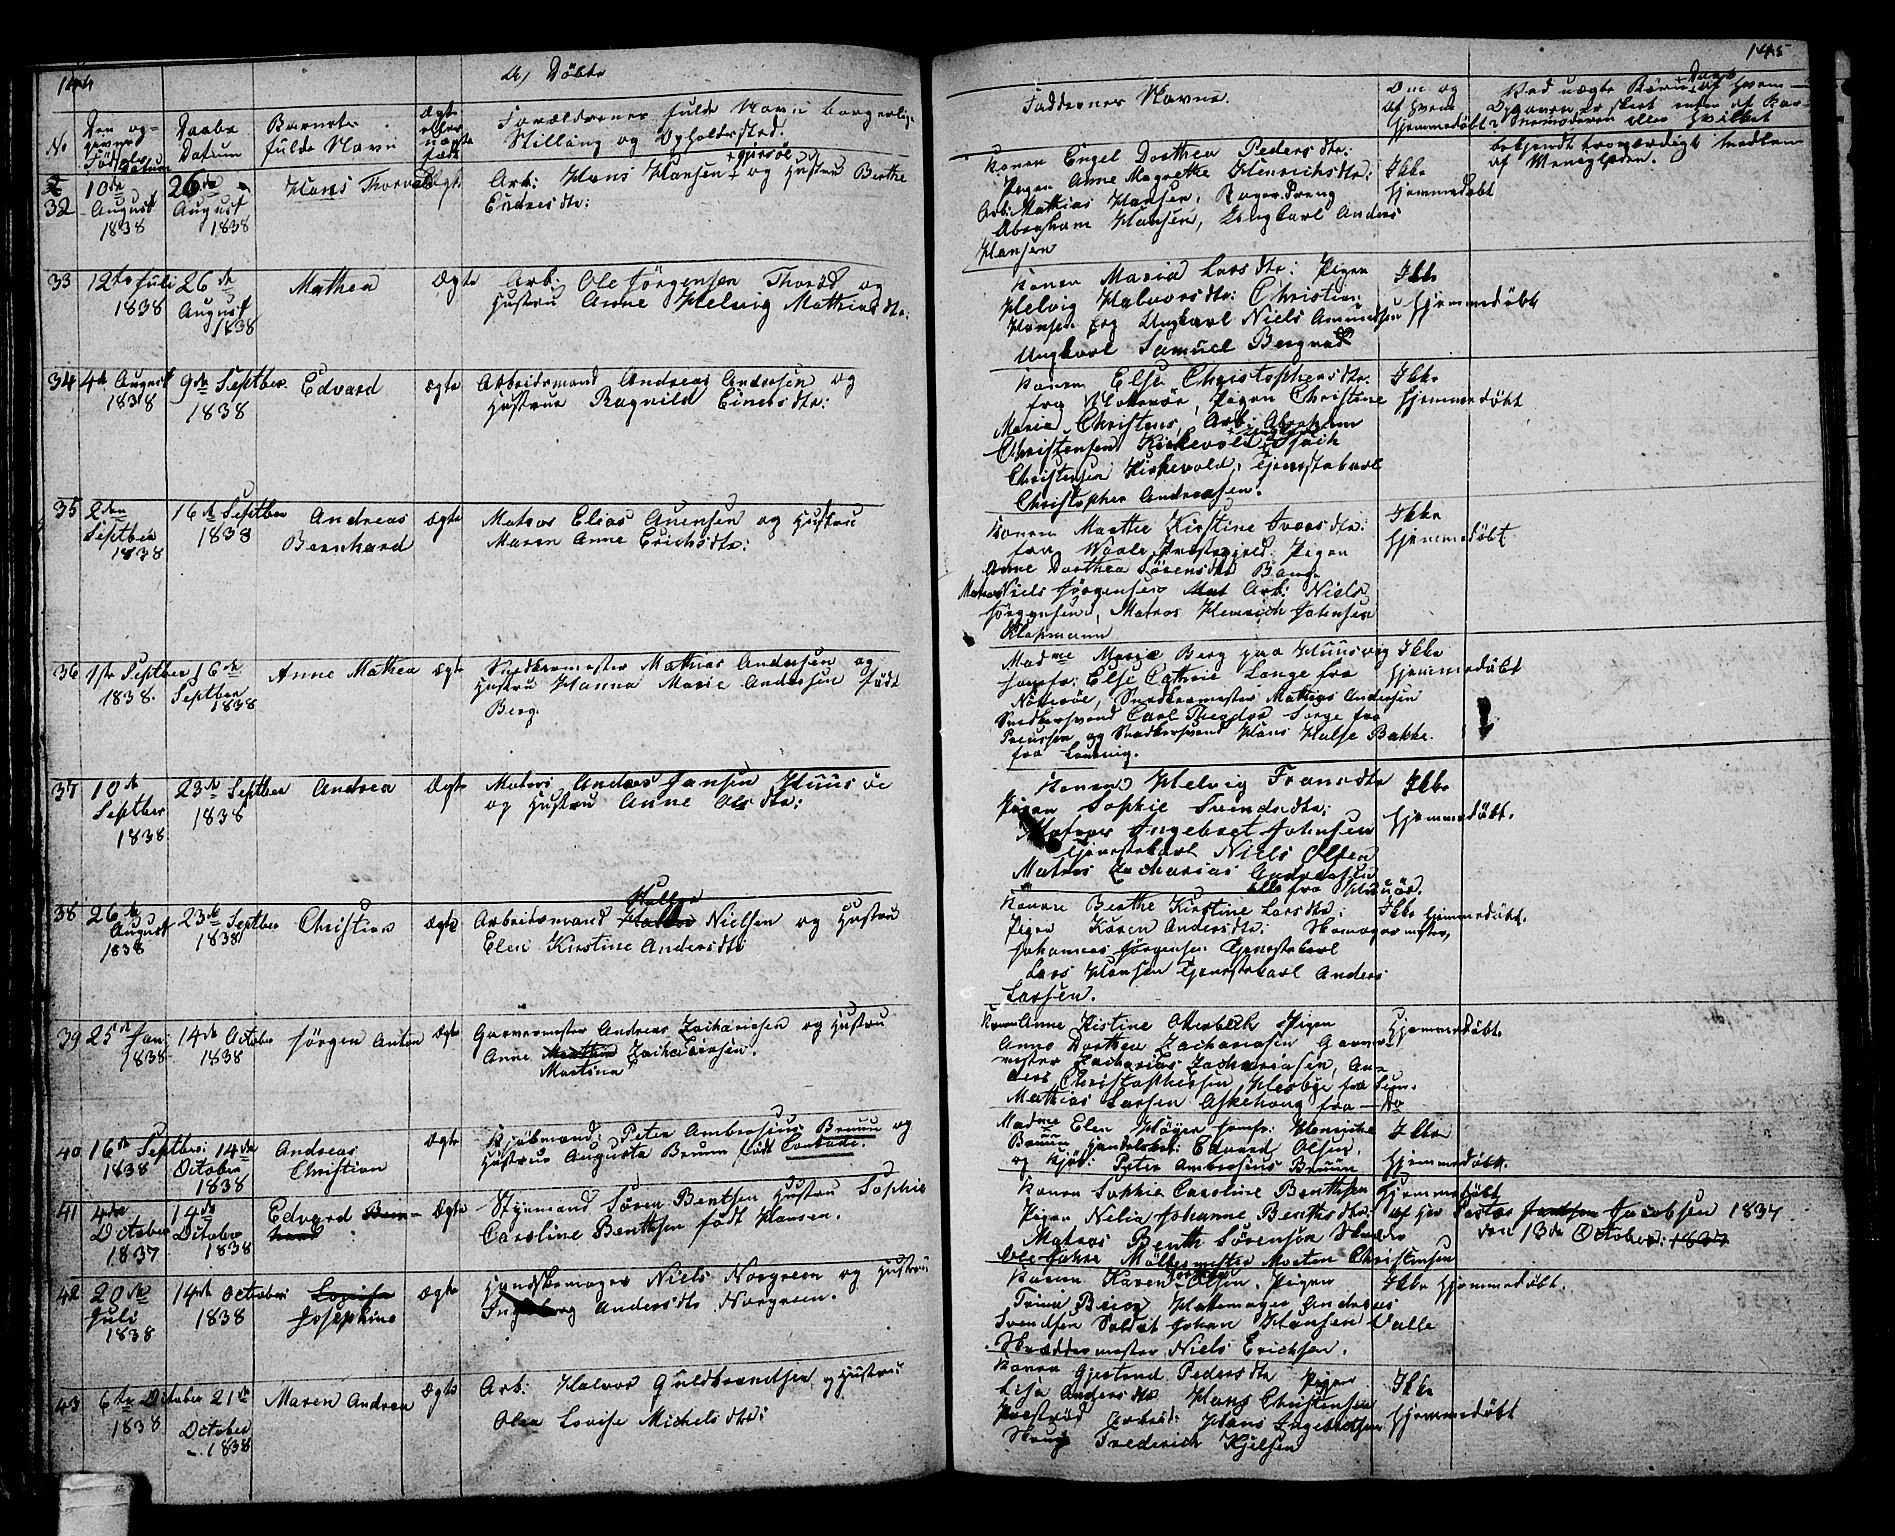 144
A, Döbte
No
Den op-
givne
Födsels
Datum
Daabs
Datum
Barnets
fulde Navn
Ægte
eller
uægte
født
Forældrenes fulde Navn borgerlige
Stilling og Opholdssted.
32
10de
August
1838
26de
August
1838
Hans Thorvald
Ægte
Arb: Hans Hansen og Hustru Berthe
Endresdtr:
33
12te Juli
1838
26de
August
1838
Mathea
Ægte
Arb: Ole Jörgensen Thoröd og
Hustru Anne Helvig Mathiasdtr:
34
4de August
1838
9de Septber
1838
Edvard
Ægte
Arbeidsmand Andreas Andersen og
Hustrue Ragnild Einersdtr:
35
2den
Septber
1838
16de Septber
1838
Andreas
Bernhard
Ægte
Matros Elias Evensen og Hustru
Maren Anne Erichsdtr:
36
1ste Septber
1838.
16de
Septber
1838
Anne Mathea
Ægte
Snedkermester Mathias Andersen og
Hustru Hanna Marie Andersen født
Berg.
37
10de
Septber
1838
23de Septber
1838
Andrea
Ægte
Matros Andreas Jansen Huusöe
og Hustru Anne Olsdtr:
38
26de
August
1838
23de Septber
1838
Christian
Ægte
Arbeidsmand Nielsen og Hustru
Elen Kirstine Andersdtr
39
25de Jan:
1838
14de October
1838
Jörgen Anton
Ægte
Garvermester Andreas Zachariasen og Hustru
Anne Zachariasen.
Martina
40
16de Septber:
1838
14de
October
1838
Andreas
Christian
Ægte
Kjöbmand: Peter Ambrosius Bruun og
Hustrue Augusta Bruun født Conradi.
41
4de
October
1837
14de
October
1838
Edvard Bern-
hard
Ægte
Styrmand Sören Bentsen Hustru Sophie
Caroline Benthsen født Hansen.
42
20de
Juli
1838
14de October
1838
Lovise
Josephine
Ægte
Handskemager Niels Norgreen og Hustru
Ingeborg Andersdtr Norgreen.
43
6te October
1838
21de
October
1838
Maren Andrea
Ægte
Arb: Halvor Guldbrandsen og Hustru
Olea Lovise Michelsdtr:
145
Faddernes Navne.
Om og
af hvem
Hjemmedöbt
Ved uægte Börn
Konen Engel Dorthea Pedersdtr:
Pigen Anne Magrethe Henrichsdtr:
Arb: Mathias Hansen,
Abraham Hansen, Ungkarl Anders
Hansen
Ikke
Hjemmedöbt
Konen Maria Larsdtr: Pigen
Helvig Halvorsdtr: Christian
Hansen og Ungkarl Niels Amundsen
Ungkarl Samuel
Ikke
Hjemmedöbt
Konen Else Christophersdtr:
fra Nötteröe, Pigen Christine
Maria Christens, Arb: Abraham
Christensen Kirkevold
Christensen Kirkevold, Tjenestekarl
Christopher Andreasen.
Ikke
Hjemmedöbt
Konen Marthe Kirstine Iversdtr:
fra Vaale Præstegjeld: Pigen
Anne Dorthea Sörensdtr
Matros Niels Jörgensen Arb: Niels
Jörgensen, Matros Henrich Johnsen
Klopmann
Ikke
Hjemmedöbt
Madme Marie Berg paa
Jomfr: Else Cathrie Lange fra
Nötteröe, Snedkermester Mathias Andersen
Snedkersvend Carl Theodor Sorge fra
Preussen og Snedkersvend Hans Halse Bakke.
fra Laurvig.
Ikke
Hjemmedöbt
Konen Helvig Fransdtr
Pigen Sophie Svendsdtr:
Matros Ingebret Johnsen
Tjenestekarl Niels Olsen
Matros Zacharias Andreasen
alle fra Huusöe.
Ikke
Hjemmedöbt.
Konen Berthe Kirstine Larsdtr:
Pigen Karen Andersdtr: Skomagermester,
Johannes Jörgensen Tjenestekarl
Lars Hansen Tjenestekarl Anders
Larsen.
Ikke Hjemmedöbt.
Konen Anne Kistine Otterbeck Pigen
Anne Dorthea Zachariasen Garver-
mester Zacharias Zachariasen, An-
ders Christophersen fra Sem.
Mathias Larsen Askehoug fra Do
Hjemmedöbt.
Madme Elen Höyer Jomfr: Henrikke
Bruun Handelsbet: Edvard Olsen,
og Kjöb: Peter Ambrosius Bruun
Ikke
Hjemmedöbt.
Konen Sophie Caroline Benthsen
Pigen Nelia Johanne Benthsdtr:
Matros Benth Sörensön
Mölkermester Morten Christensen
Hjemmedöbt
af Hr Pastor Jacobsen 1837
den 13de October: 1837
Konen Karen Olsen, Pigen
Trine Hattemager Andreas
Svendsen Soldat Johan Hansen Valle
Skræddermester Niels Erichsen.
Ikke Hjemmedöbt.
Konen Gjertrud Pedersdtr Pigen
Lisa Andersdtr Hans Christensen
Præströd Arbeid: Hans Ingebretsen
Frederich Kjelsen
Ikke
Hjemmedöbt